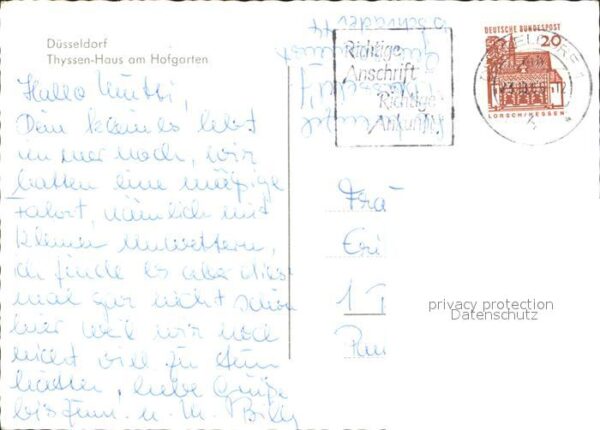 Düsseldorf
Thyssen-Haus am Hofgarten
Hallo Mutti,
Dein kleines lebt
immer noch, wir
hatten eine mäßige
Fahrt, nämlich mit
kleinen Unwettern,
ich finde es aber dies
mal gar nicht schön
hier weil wir noch
nicht viel zu tun
hatten, liebe Grüße
bis dann u.
Richtige
Anschrift
Richtige
Ankunft
DEUTSCHE BUNDESPOST
20
LORSCH/HESSEN
Fra
Eri
1
privacy protection
Datenschutz